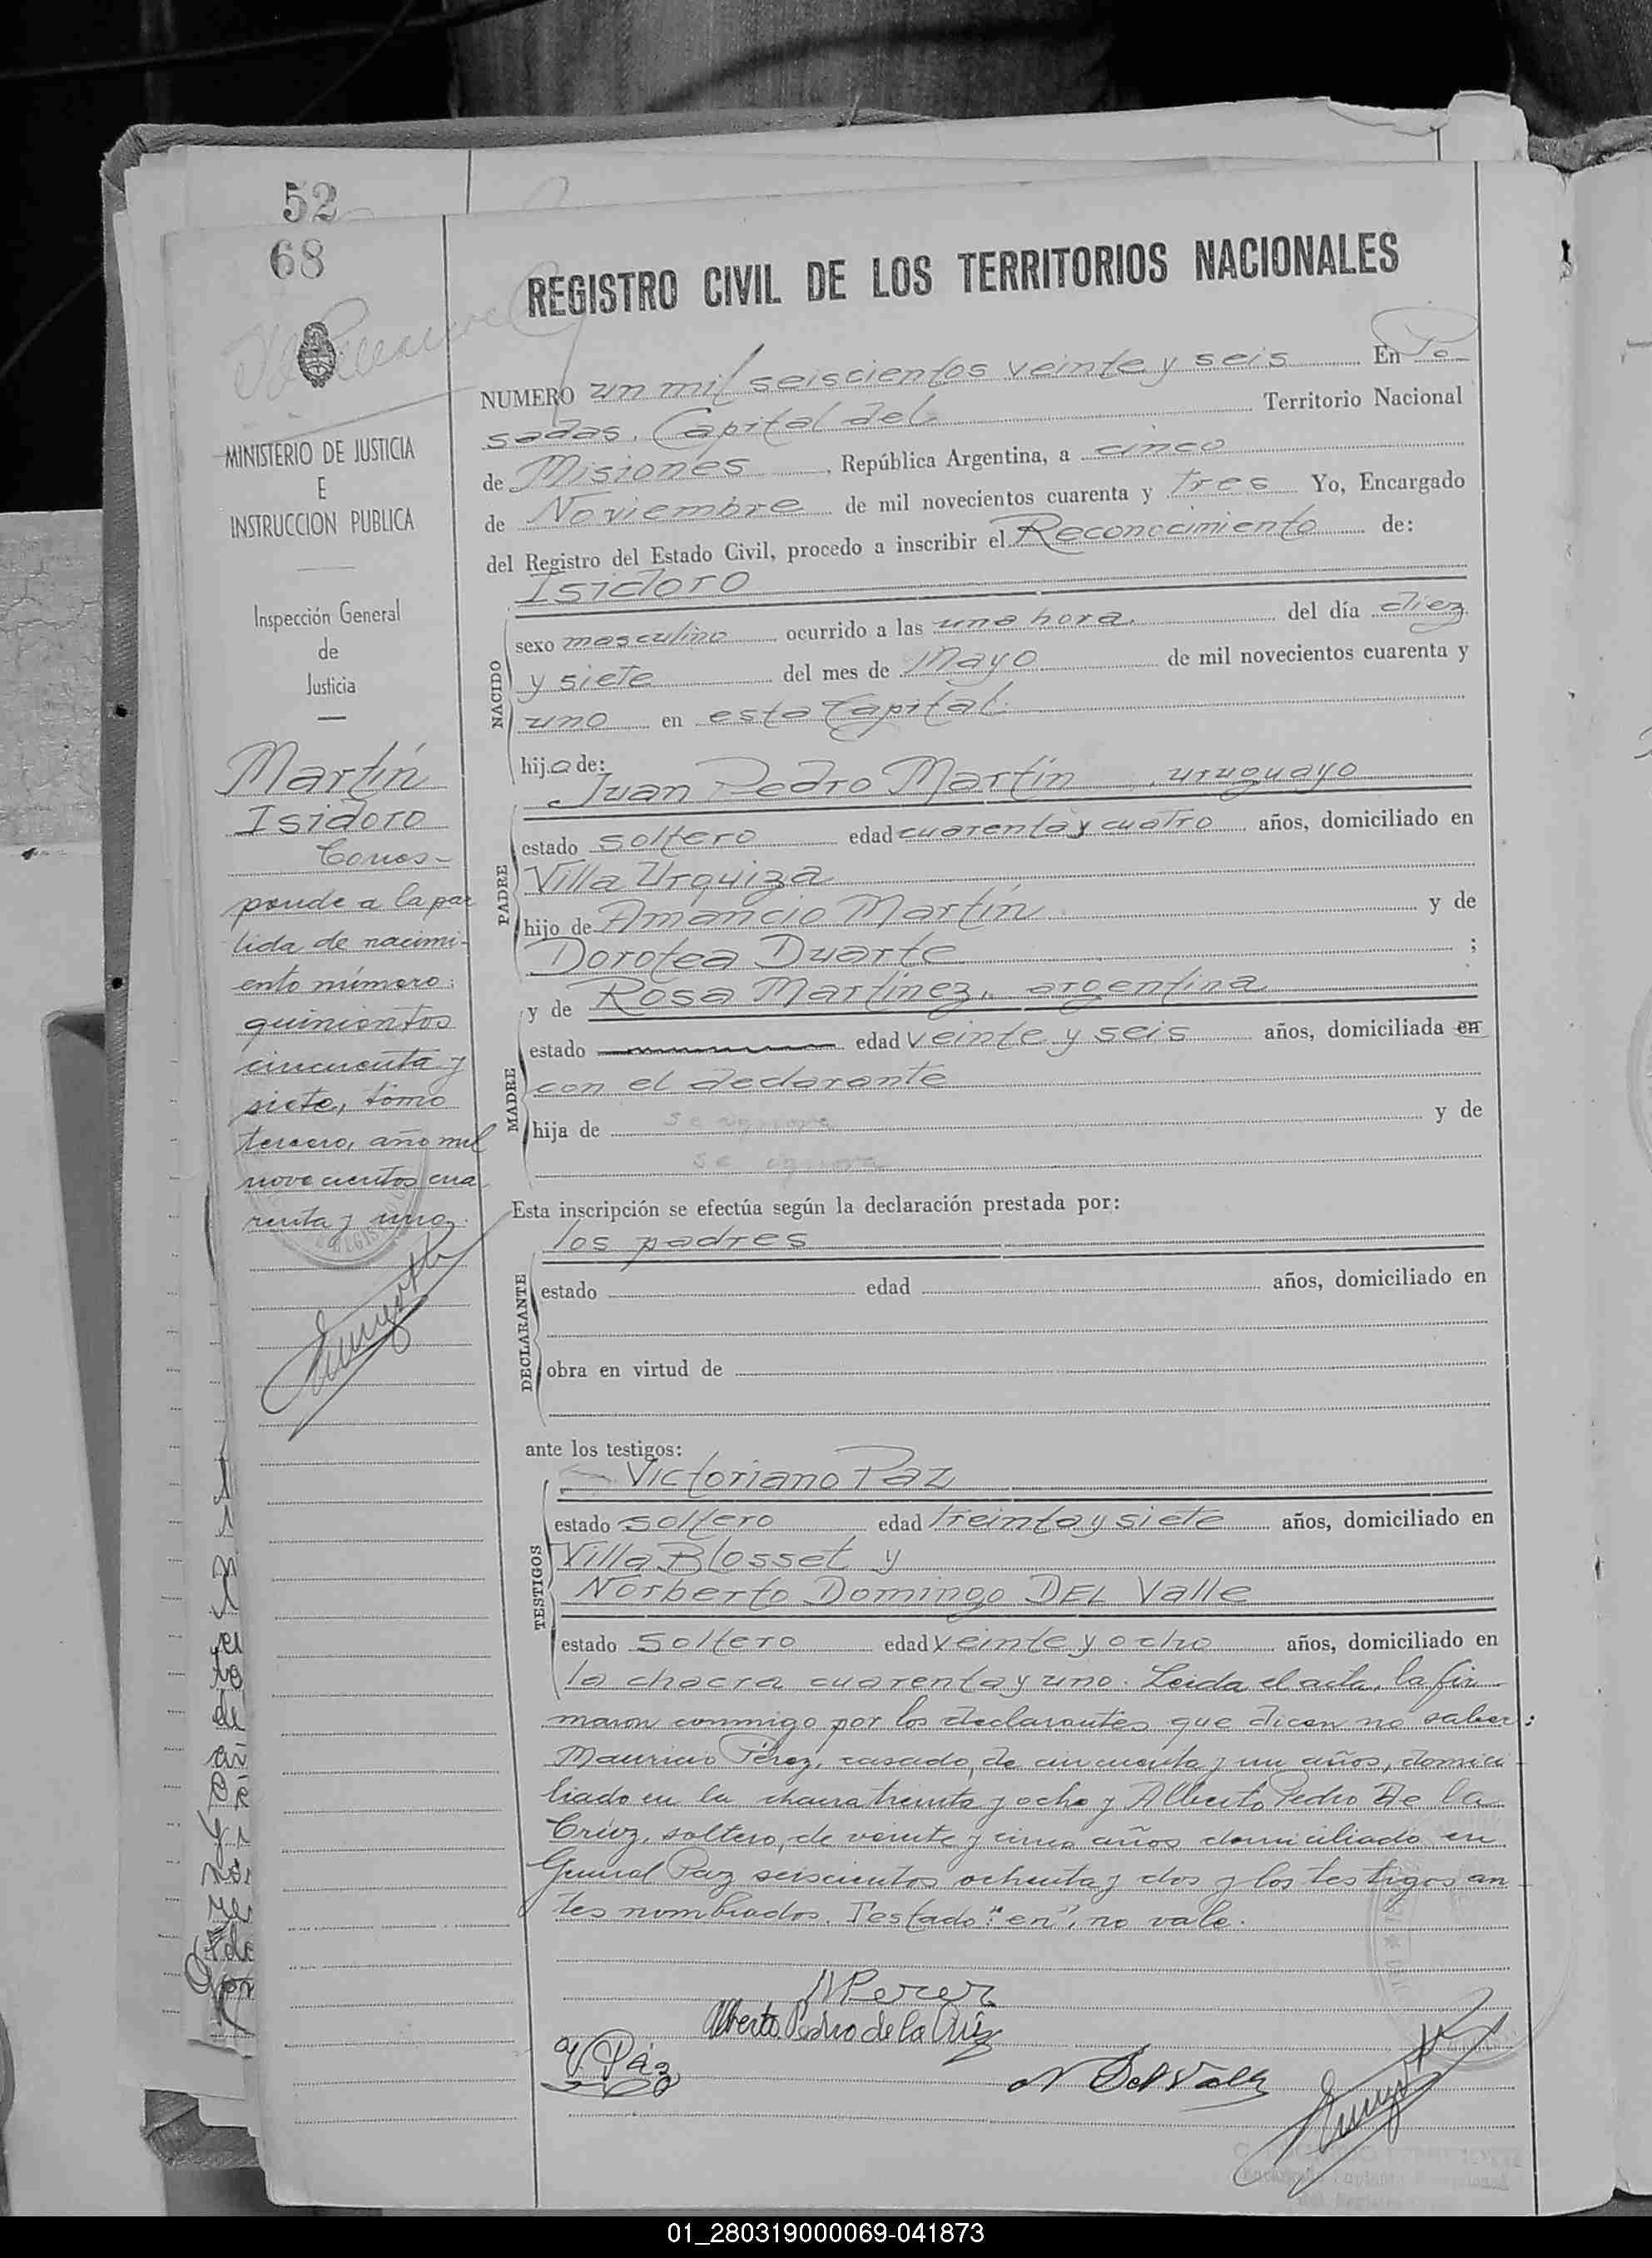 52
68
REGISTRO CIVIL DE LOS TERRITORIOS NACIONALES
MINISTERIO DE JUSTICIA
E
INSTRUCCION PUBLICA
Inspección General
de
Justicia
Martín
Isidoro
Corres-
ponde a la par
tida de nacimi-
ento número:
quinientos
cincuenta y
siete, tomo
tercero, año mil
novecientos cua
renta y uno.
NUMERO un mil seiscientos veinte y seis En Po
sadas, Capital del Territorio Nacional
de Misiones, República Argentina, a cinco
de Noviembre de mil novecientos cuarenta y tres Yo, Encargado
del Registro del Estado Civil, procedo a inscribir el Reconocimiento de:
Isidoro
NACIDO
sexo masculino ocurrido a las una hora. del día diez
y siete del mes de Mayo de mil novecientos cuarenta y
uno en esta Capital.
hijo de:
Juan Pedro Martín, uruguayo
PADRE
estado soltero edad cuarenta y cuatro años, domiciliado en
Villa Urquiza
hijo de Amancio Martín y de
Dorotea Duarte ;
y de Rosa Martínez, argentina
MADRE
estado edad veinte y seis años, domiciliada en
con el declarante
hija de se ignora y de
se ignora
Esta inscripción se efectúa según la declaración prestada por:
los padres
DECLARANTE
estado edad años, domiciliado en
obra en virtud de
ante los testigos:
Victoriano Paz
TESTIGOS
estado soltero edad treinta y siete años, domiciliado en
Villa Blosset y
Norberto Domingo DEL Valle
estado soltero edad veinte y ocho años, domiciliado en
la chacra cuarenta y uno. Leida el acta, la fir-
maron conmigo por los declarantes que dicen no saber:
Mauricio Pérez, casado, de cincuenta y un años, domici-
liado en la chacra treinta y ocho y Alberto Pedro De la
Cruz, soltero, de veinte y cinco años domiciliado en
General Paz seiscientos ochenta y dos y los testigos an-
tes nombrados. Testado: "en", no vale.
M Perez
Alberto Pedro de la Cruz
V. Páz
N Del Valle
01_280319000069-041873